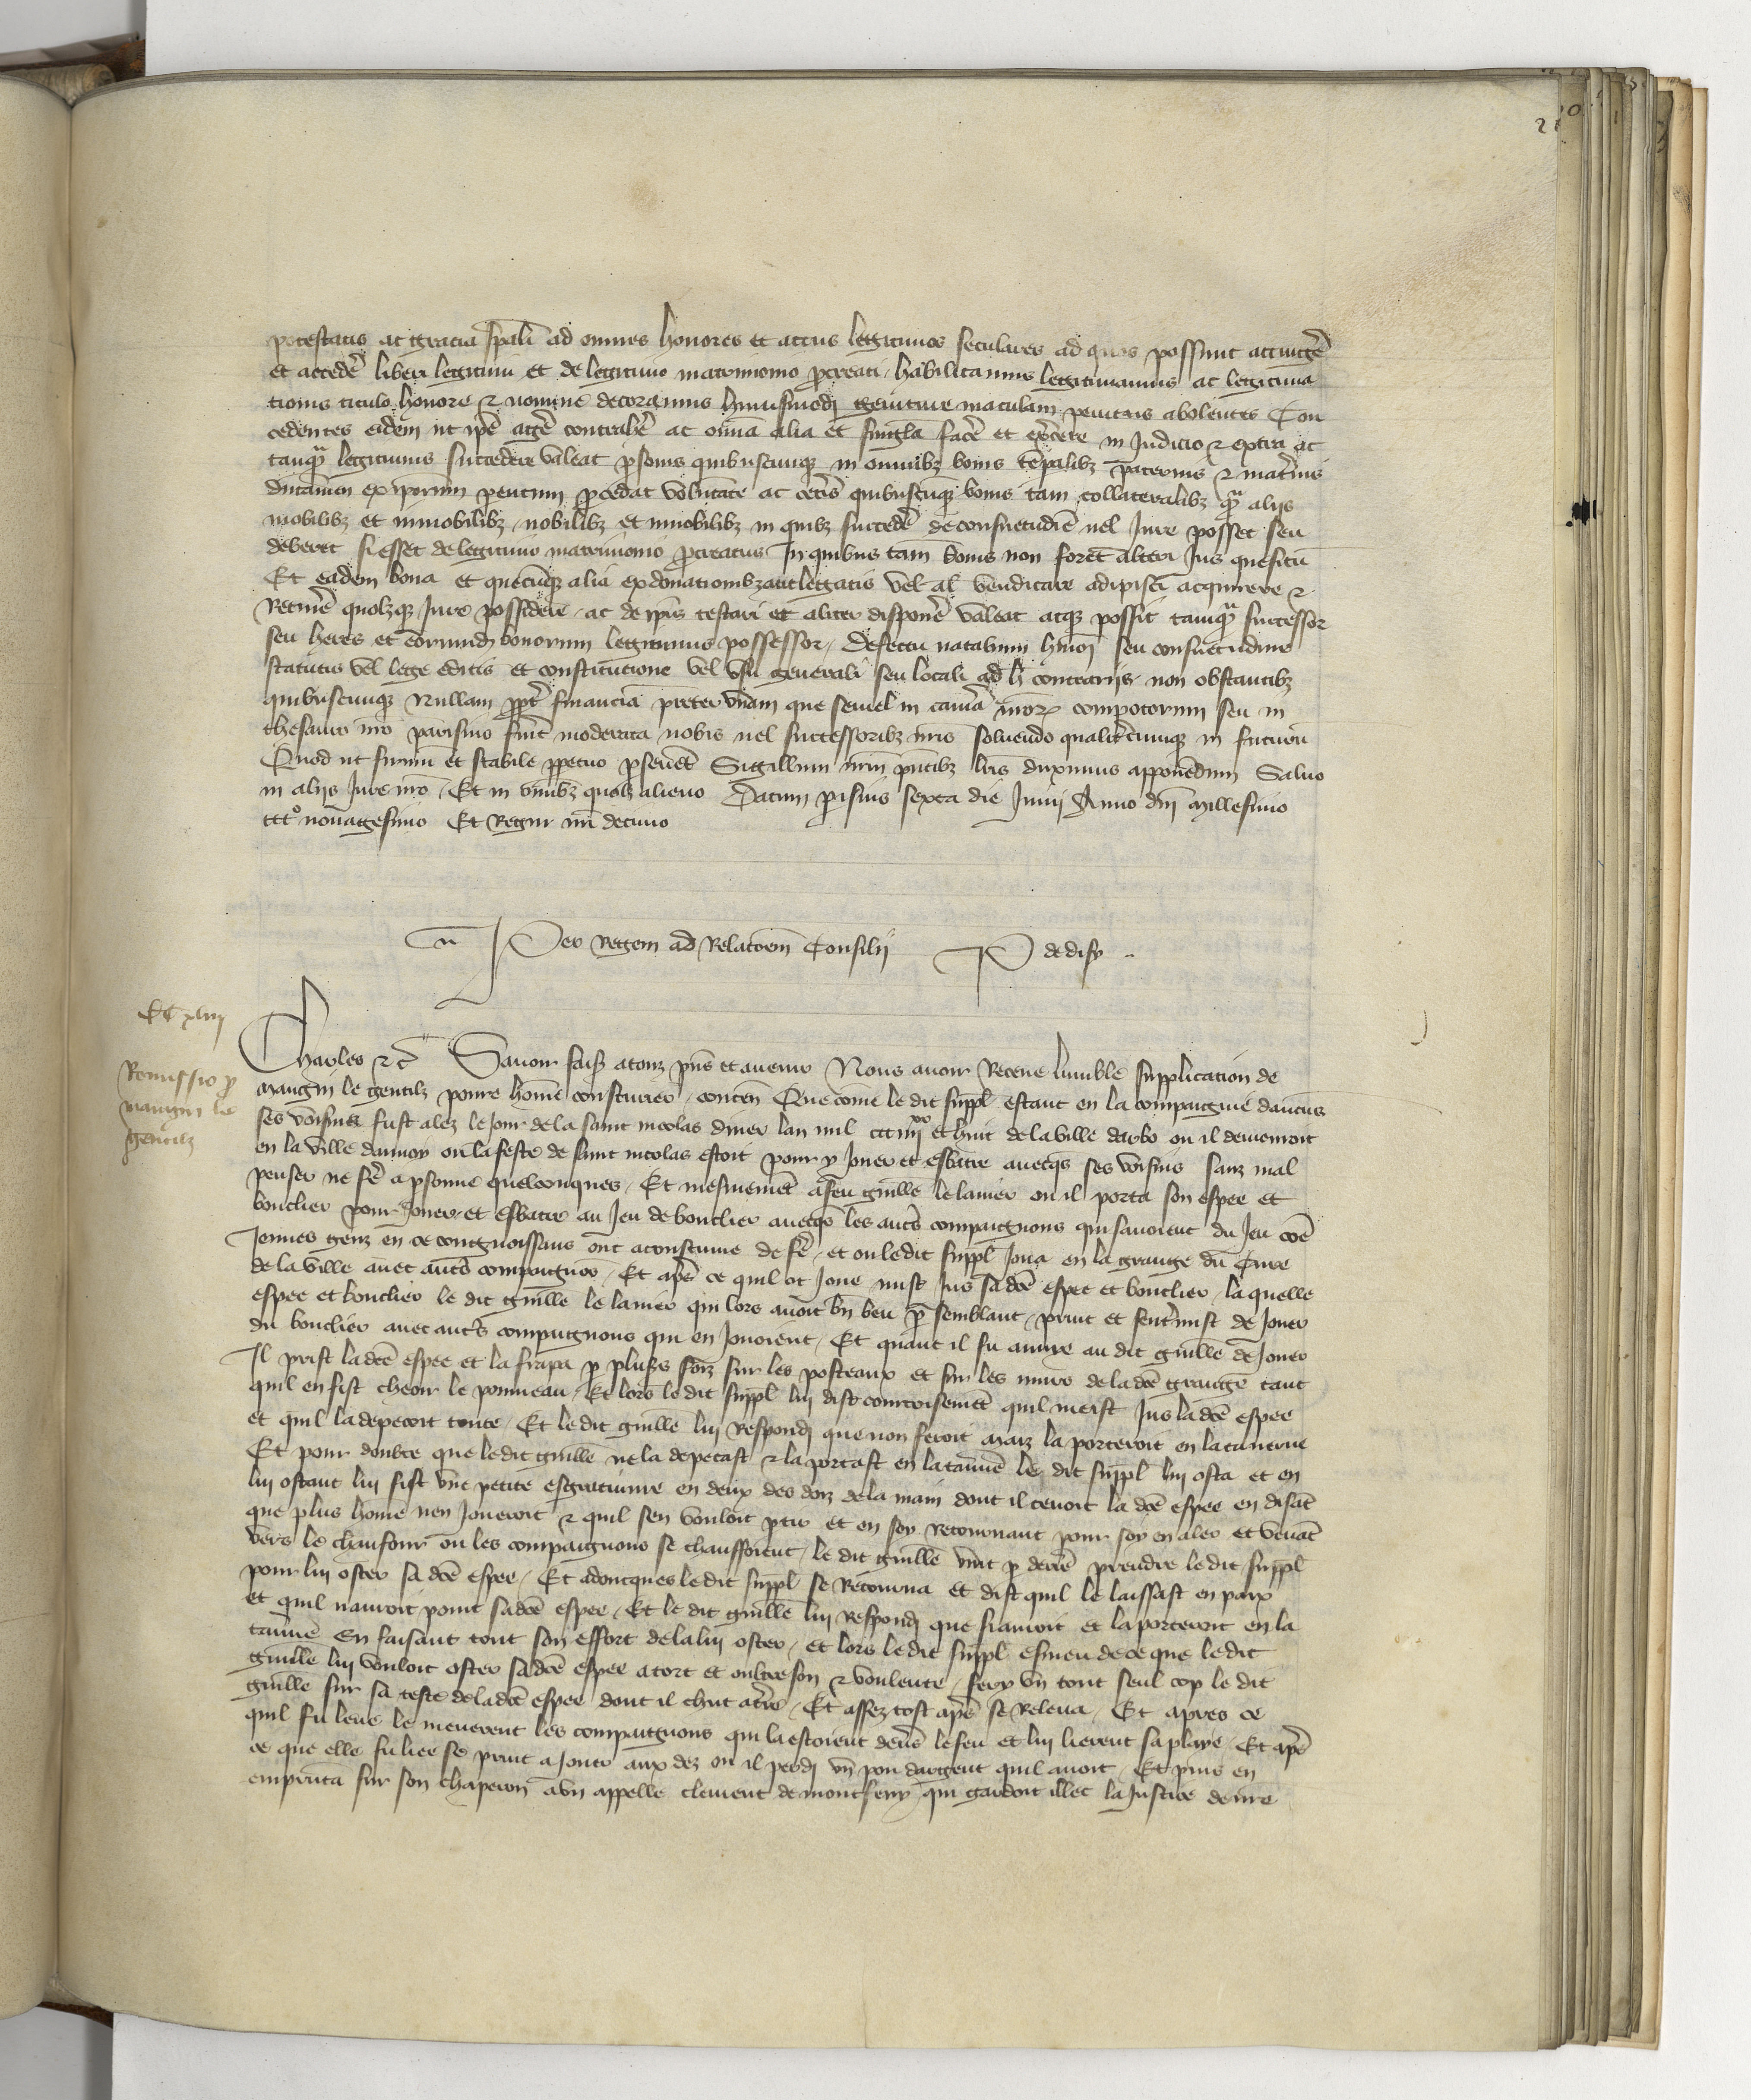 potestatis ac gracia sp̄ali ad omnes honores et actus legitimos seculares ad quos possunt attingē
et accedē liberi legitimi et de legitimo matrimonio p̄creati habilitamus legitimamus ac legitima
tionis titulo honore ⁊ nomine decoramus huiusmodi geniture maculam penitus abolentes Con
cedentes eidem ut ip̄e agē contrahē ac om̄ia alia et singl̄a facē et ex̄cere in Judicio ⁊ extra ac
tanqᵃ legitimus succedere valeat ꝑsonis quibuscunqꝫ in omnibꝫ bonis tēpalibꝫ paternis ⁊ mat̄nis
dūtamen ex ip̄orum parentum ꝓcedat voluntate ac cet̄is quibuscūqꝫ bonis tam collateralibꝫ qᵃ aliis
mobilibꝫ et inmobilibꝫ nobilibꝫ et innobilibꝫ in quibꝫ succedē de consuetudīe vel Jure posset seu
deberet si esset de legitimo matrimonio ꝓcreatus In quibus tam̄ bonis non foret alteri Jus quesitū
Et eadem bona et quecūqꝫ alia ex donationibꝫ aut legatis vel al̄ vendicare adipisci acquirere ⁊
Retinē quolꝫqꝫ Jure possidere ac de ip̄is testari et aliter disponē valeat atqꝫ possit tanqᵃ successor
seu heres et eorumdē bonorum legitimus possessor defectu natalium hmōi seu consuetudine
statutis vel lege editis et constitutione vel usu generali seu locali ad h̄ contrariis non obstantibꝫ
quibuscunqꝫ Nullam ꝓpt̄ financiā preter unam que semel in cam̄a nr̄orꝫ compotorum seu in
thesauro nr̄o parisius fiūt moderata nobis vel successoribꝫ nr̄is soluendo qualit̄cunqꝫ in futurū
Quod ut firmū et stabile ꝑpetuo ꝑseueret Sigillum nr̄m pn̄tibꝫ lr̄is duximus apponēdum Saluo
in aliis Jure nr̄o Et in om̄ibꝫ quolꝫ alieno Datum parisius sexta die Junii Anno dn̄i Millesimo
cccᵒ nonagesimo Et Regni nr̄i decimo
Per Regem ad Relac̄oem Consilii P de disy
Et xliiij
Remissio ꝑ
maugin le
gentilz
Charles ⁊c̄ Sauoir faiss̄ atouz pn̄s et auenir Nous auoir Receue lumble supplicacion de
Maugin le gentilz poure hom̄e cousturier conten̄ Que com̄e le dit suppl̄ estant en la compaignie daucūs
ses voisins fust alez le Jour de la saint nicolas diuer lan mil ccc iiijˣˣ et huit de la ville darbo ou il demeuroit
en la ville daunoy ou la feste de saint nicolas estoit pour y Jouer et esbatre auecqs ses voisins sanz mal
penser ne fē a ꝑsonne quelconques Et mesmemēt a feu guill̄e le lanier ou il porta son espee et
bouclier pour Jouer et esbatre au Jeu de bouclier auecqs les aut̄s compaignons qui sauoient du Jeu cōē
Jeunes genz en ce congnoissans ont acoustume de fē et ou le dit suppl̄ Joua en la grange du Cure
de la ville auec aut̄s compaignōs Et ap̄s ce quil ot Joue mist Jus sa dc̄e espee et bouclier la quelle
espee et bouclier le dit guill̄e le lanier qui lors auoit bn̄ beu ꝑ semblant print et sent̄mist de Jouer
du bouclier auec aut̄s compaignons qui en Jouoient Et quant il fu anuye au dit guill̄e de Jouer
Il prist ladc̄e espee et la frapa ꝑ plus̄s foiz sur les posteaux et sur les murs de ladc̄e grange tant
quil en fist cheoir le pommeau Et lors le dit suppl̄ lui dist courtoisemēt quil meist Jus ladc̄e espee
et quil la depecoit toute Et le dit guill̄e lui Respondi que non feroit maiz la porteroit en la tauerne
Et pour doubte que le dit guill̄e ne la depecast ⁊ la portast en la taūne le dit suppl̄ lui osta et en
lui ostant lui fist une petite esgratinure en deux des doiz de la main dont il tenoit la dc̄e espee en disāt
que plus home nen Joueroit ⁊ quil sen vouloit ꝑtir et en soy Retournant pour soy en aler et venāt
vers le chaufour ou les compaignons se chauffoient le dit guill̄e vint ꝑ derr̄e prendre le dit suppl̄
pour lui oster sa dc̄e espee Et adoncques le dit suppl̄ se Retourna et dist quil le laissast en paix
et quil nauroit point sadc̄e espee Et le dit guill̄e lui Respondi que si auroit et la porteroit en la
taūne En faisant tout son effort de la lui oster et lors le dit suppl̄ esmeu de ce que le dit
guill̄e lui vouloit oster sadc̄e espee a tort et oultre son ⁊ voulente fery un tout seul cop le dit
guill̄e sur sa teste de ladc̄e espee dont il chut at̄re Et assez tost ap̄s se Releua Et apres ce
quil fu leue le menerent les compaignons qui la estoient deūs le feu et lui lierent sa playe Et ap̄s
ce que elle fu liee se print a Jouer aux dez ou il perdi un pou dargent quil auoit Et puis en
emprunta sur son chaperon a un appelle clement de montfery qui gardoit illec la Justice de nr̄e